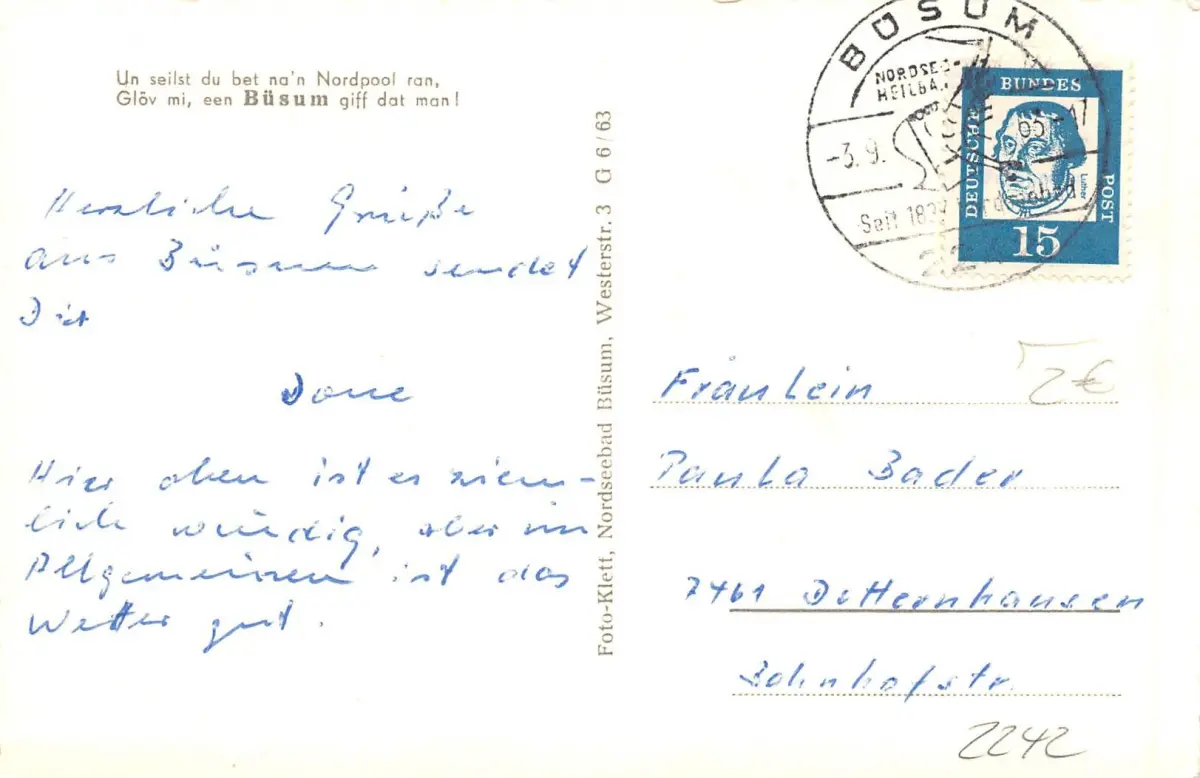 Un seilst du bet na'n Nordpool ran,
Glöv mi, een Büsum giff dat man!
Herzliche Grüße
aus Büsum sendet
Dir
Hier oben ist es ziem-
lich windig, aber im
Allgemeinen ist das
Wetter gut.
Foto-Klett, Nordseebad Büsum, Westerstr. 3 G 6/63
BÜSUM
NORDSEE-
HEILBA
-3.9.
63
Seit 183
22
DEUTSCHE
BUNDES
POST
Luther
15
2€
Fräulein
Paula Bader
7461 Dotternhausen
Bahnhofstr.
2242